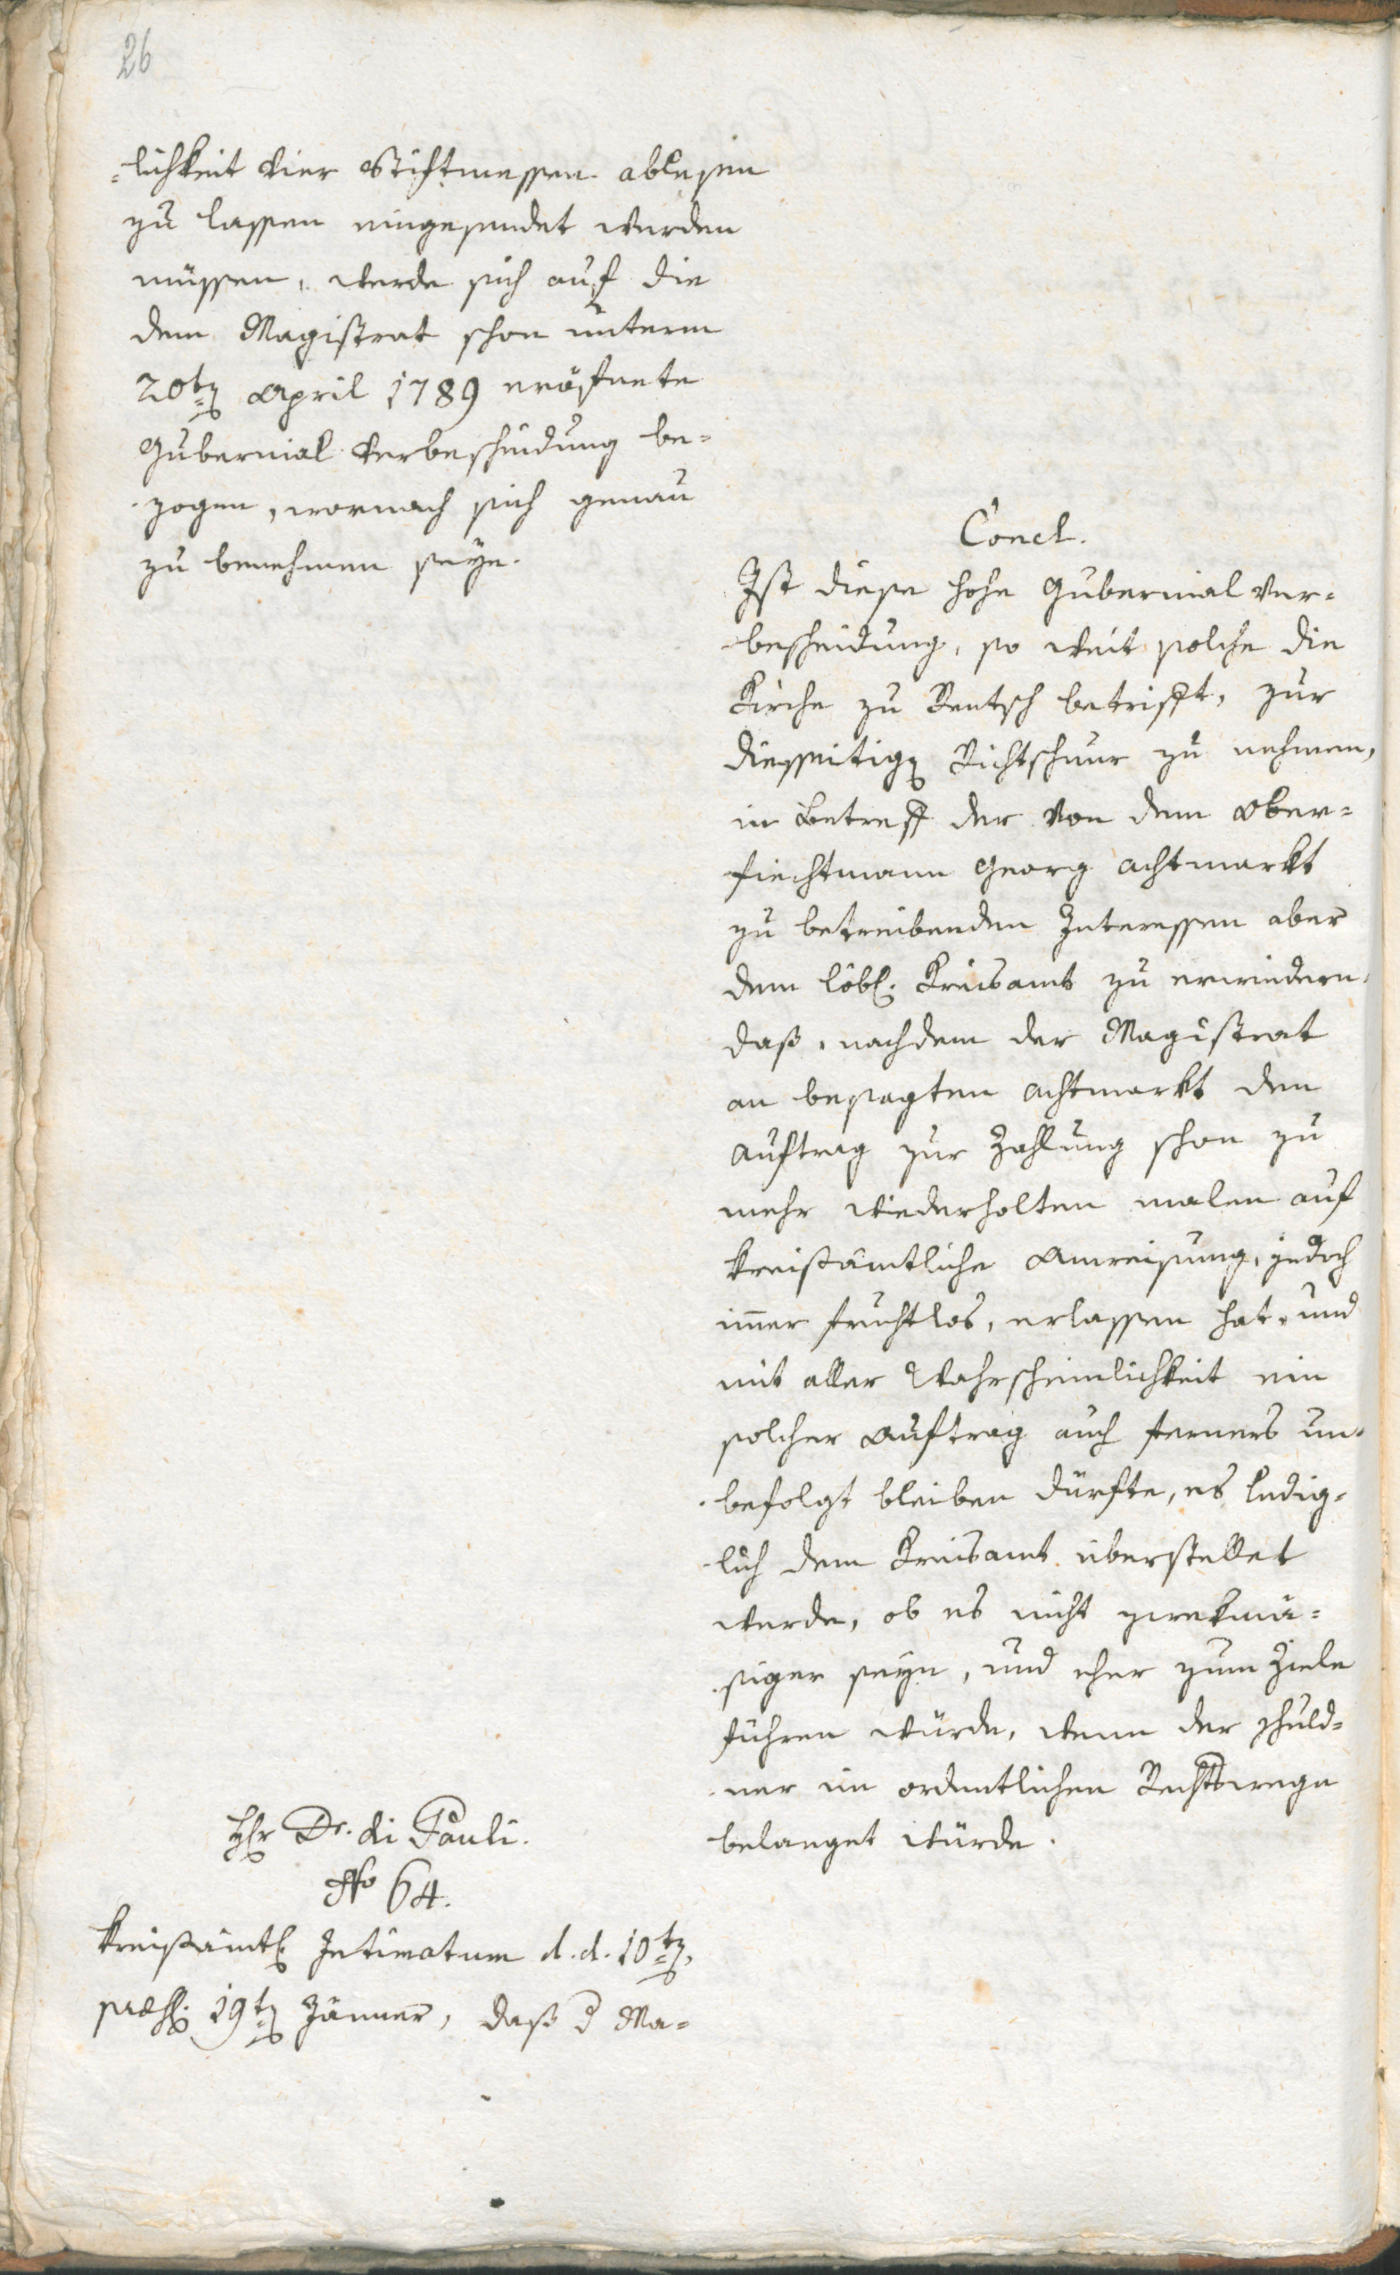 26
=lichkeit vier Stiftmessen ablesen
zu lassen eingesendet werden
müssen, werde sich auf die
dem Magistrat schon unterm
20ten April 1789 eröfnete
Gubernial Verbescheidung be=
zogen, wornach sich genau
zu benehmen seye.
Concl.
Ist diese hohe Gubernial Ver=
bescheidung, so weit solche die
Kirche zu Rentsch betrifft, zur
diesseitigen Richtschnur zu nehmen,
in Betreff der von dem Ober=
fiechtmann Georg Achtmarkt
zu betreibenden Interessen aber
dem löbl. Kreisamt zu erwiedern,
daß, nachdem der Magistrat
an besagten Achtmarkt den
Auftrag zur Zahlung schon zu
mehr wiederholten malen auf
kreißämtliche Anweisung, jedoch
im̅er fruchtlos, erlassen hat, und
mit aller Wahrscheinlichkeit ein
solcher Auftrag auch ferners un=
befolgt bleiben dürfte, es ledig=
lich dem Kreisamt überstellet
werde, ob es nicht zwekmä=
siger seyn, und eher zum Ziele
führen würde, wenn der Schuld=
ner im ordentlichen Rechtswege
belanget würde.
Hr Dr. di Pauli.
No 64.
Kreißämtl. Intimatum d. d. 10ten,
præs. 19ten Jänner, daß d Ma=